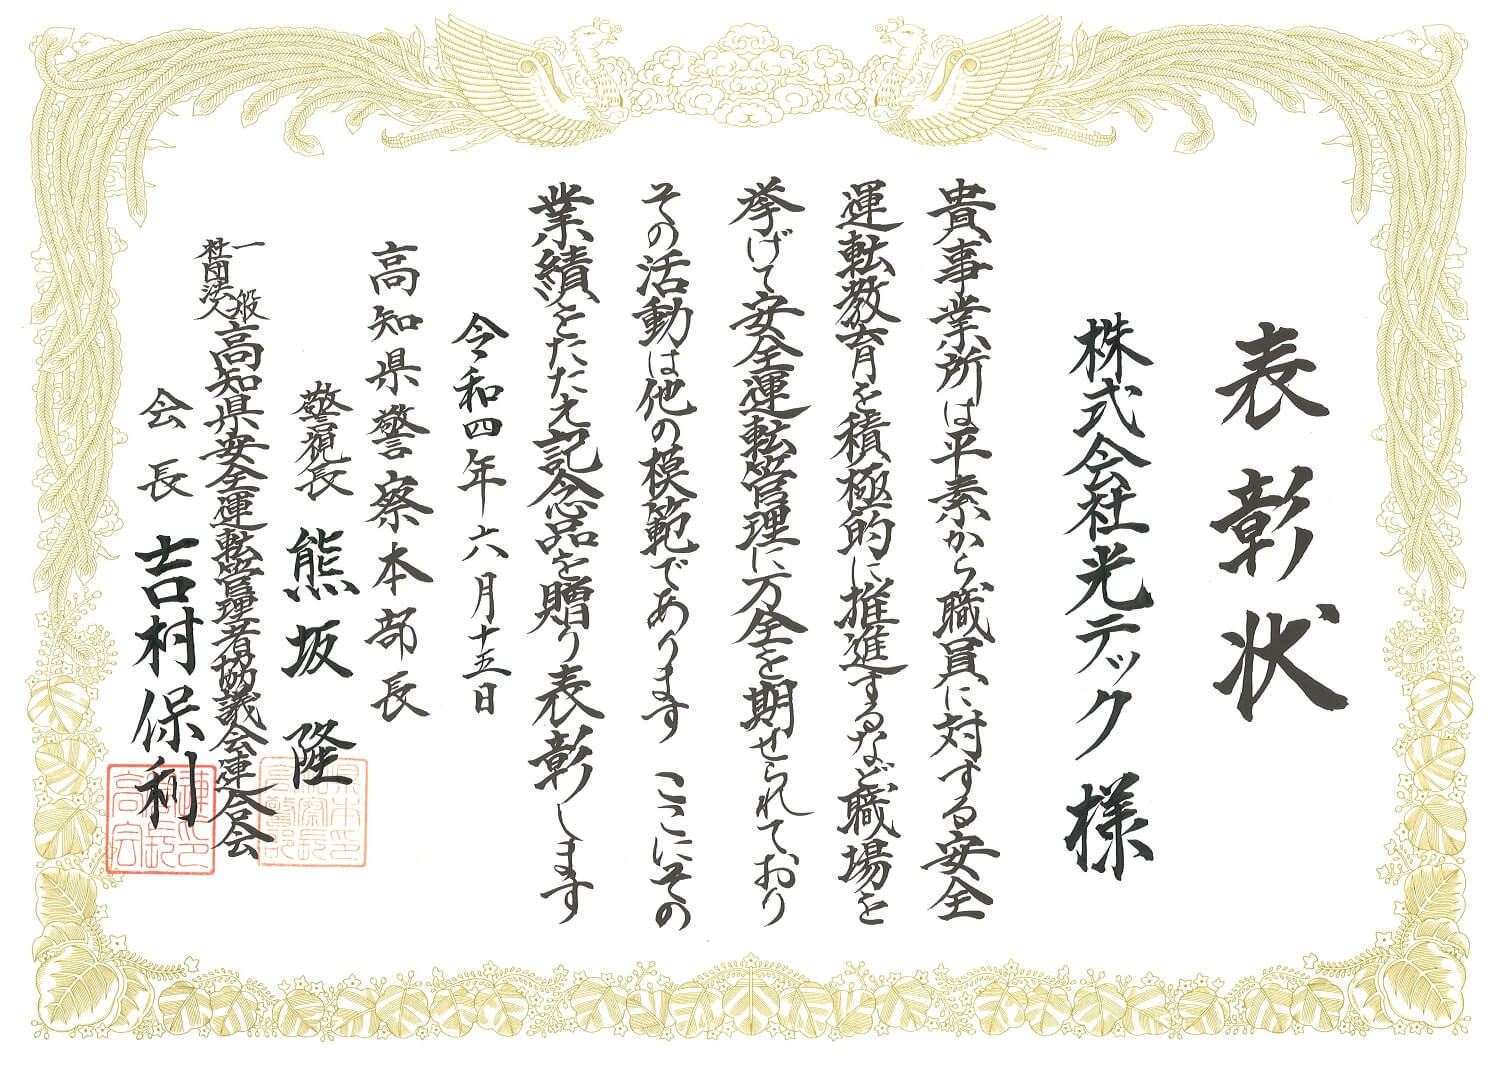 表彰状
株式会社光テック様
貴事業所は平素から職員に対する安全
運転教育を積極的に推進するなど職場を
挙げて安全運転管理に万全を期せられており
その活動は他の模範であります ここにその
業績をたたえ記念品を贈り表彰します
令和四年六月十五日
高知県警察本部長
警視長 熊坂隆
一般社団法人高知県安全運転管理者協議会連合会
会長 吉村保利